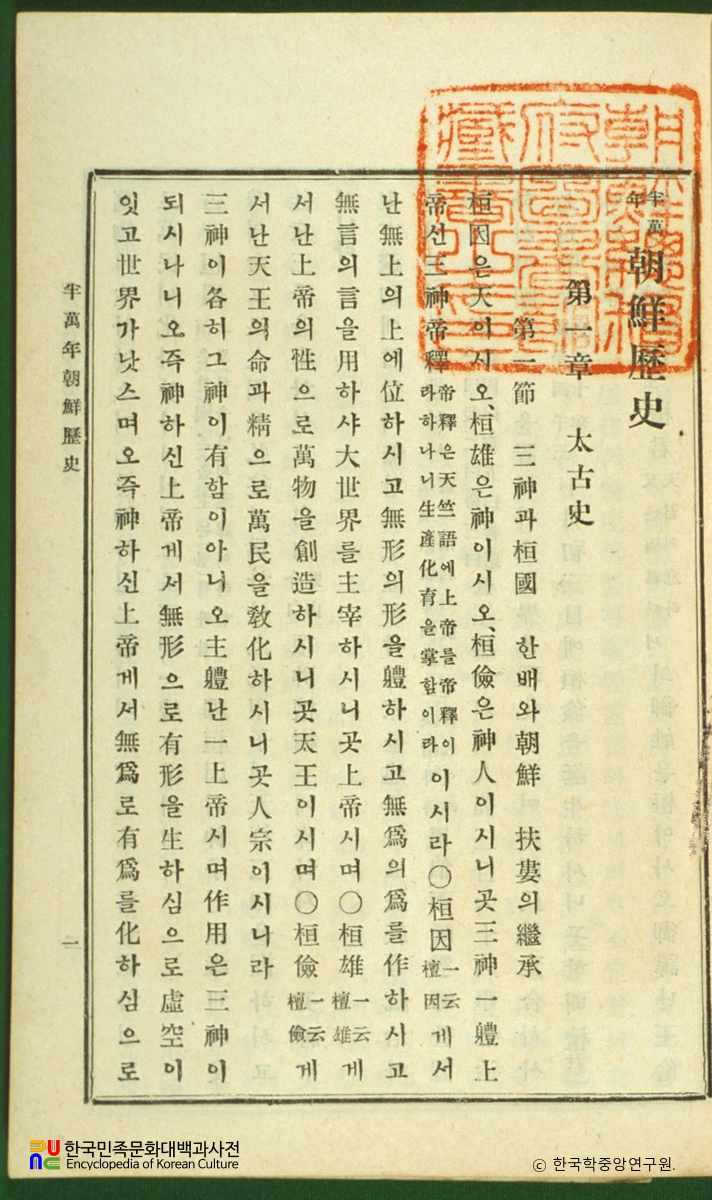 半萬年 朝鮮歷史
第一章 太古史
第一節 三神과桓國 한배와朝鮮 扶婁의繼承
桓因은天이시오、桓雄은神이시오、桓儉은神人이시니곳三神一軆上
帝신三神帝釋 帝釋은天竺語에上帝를帝釋이라하나니生產化育을掌함이라 이시라〇桓因 一云檀因 게서
난無上의上에位하시고無形의形을軆하시고無爲의爲를作하시고
無言의言을用하샤大世界를主宰하시니곳上帝시며〇桓雄 一云檀雄 게
서난上帝의性으로萬物을創造하시니곳天王이시며〇桓儉 一云檀儉 게
서난天王의命과精으로萬民을敎化하시니곳人宗이시니라
三神이各히그神이有함이아니오主軆난一上帝시며作用은三神이
되시나니오즉神하신上帝게서無形으로有形을生하심으로虛空이
잇고世界가낫스며오즉神하신上帝게서無爲로有爲를化하심으로
半萬年朝鮮歷史
一
한국민족문화대백과사전
Encyclopedia of Korean Culture
© 한국학중앙연구원.